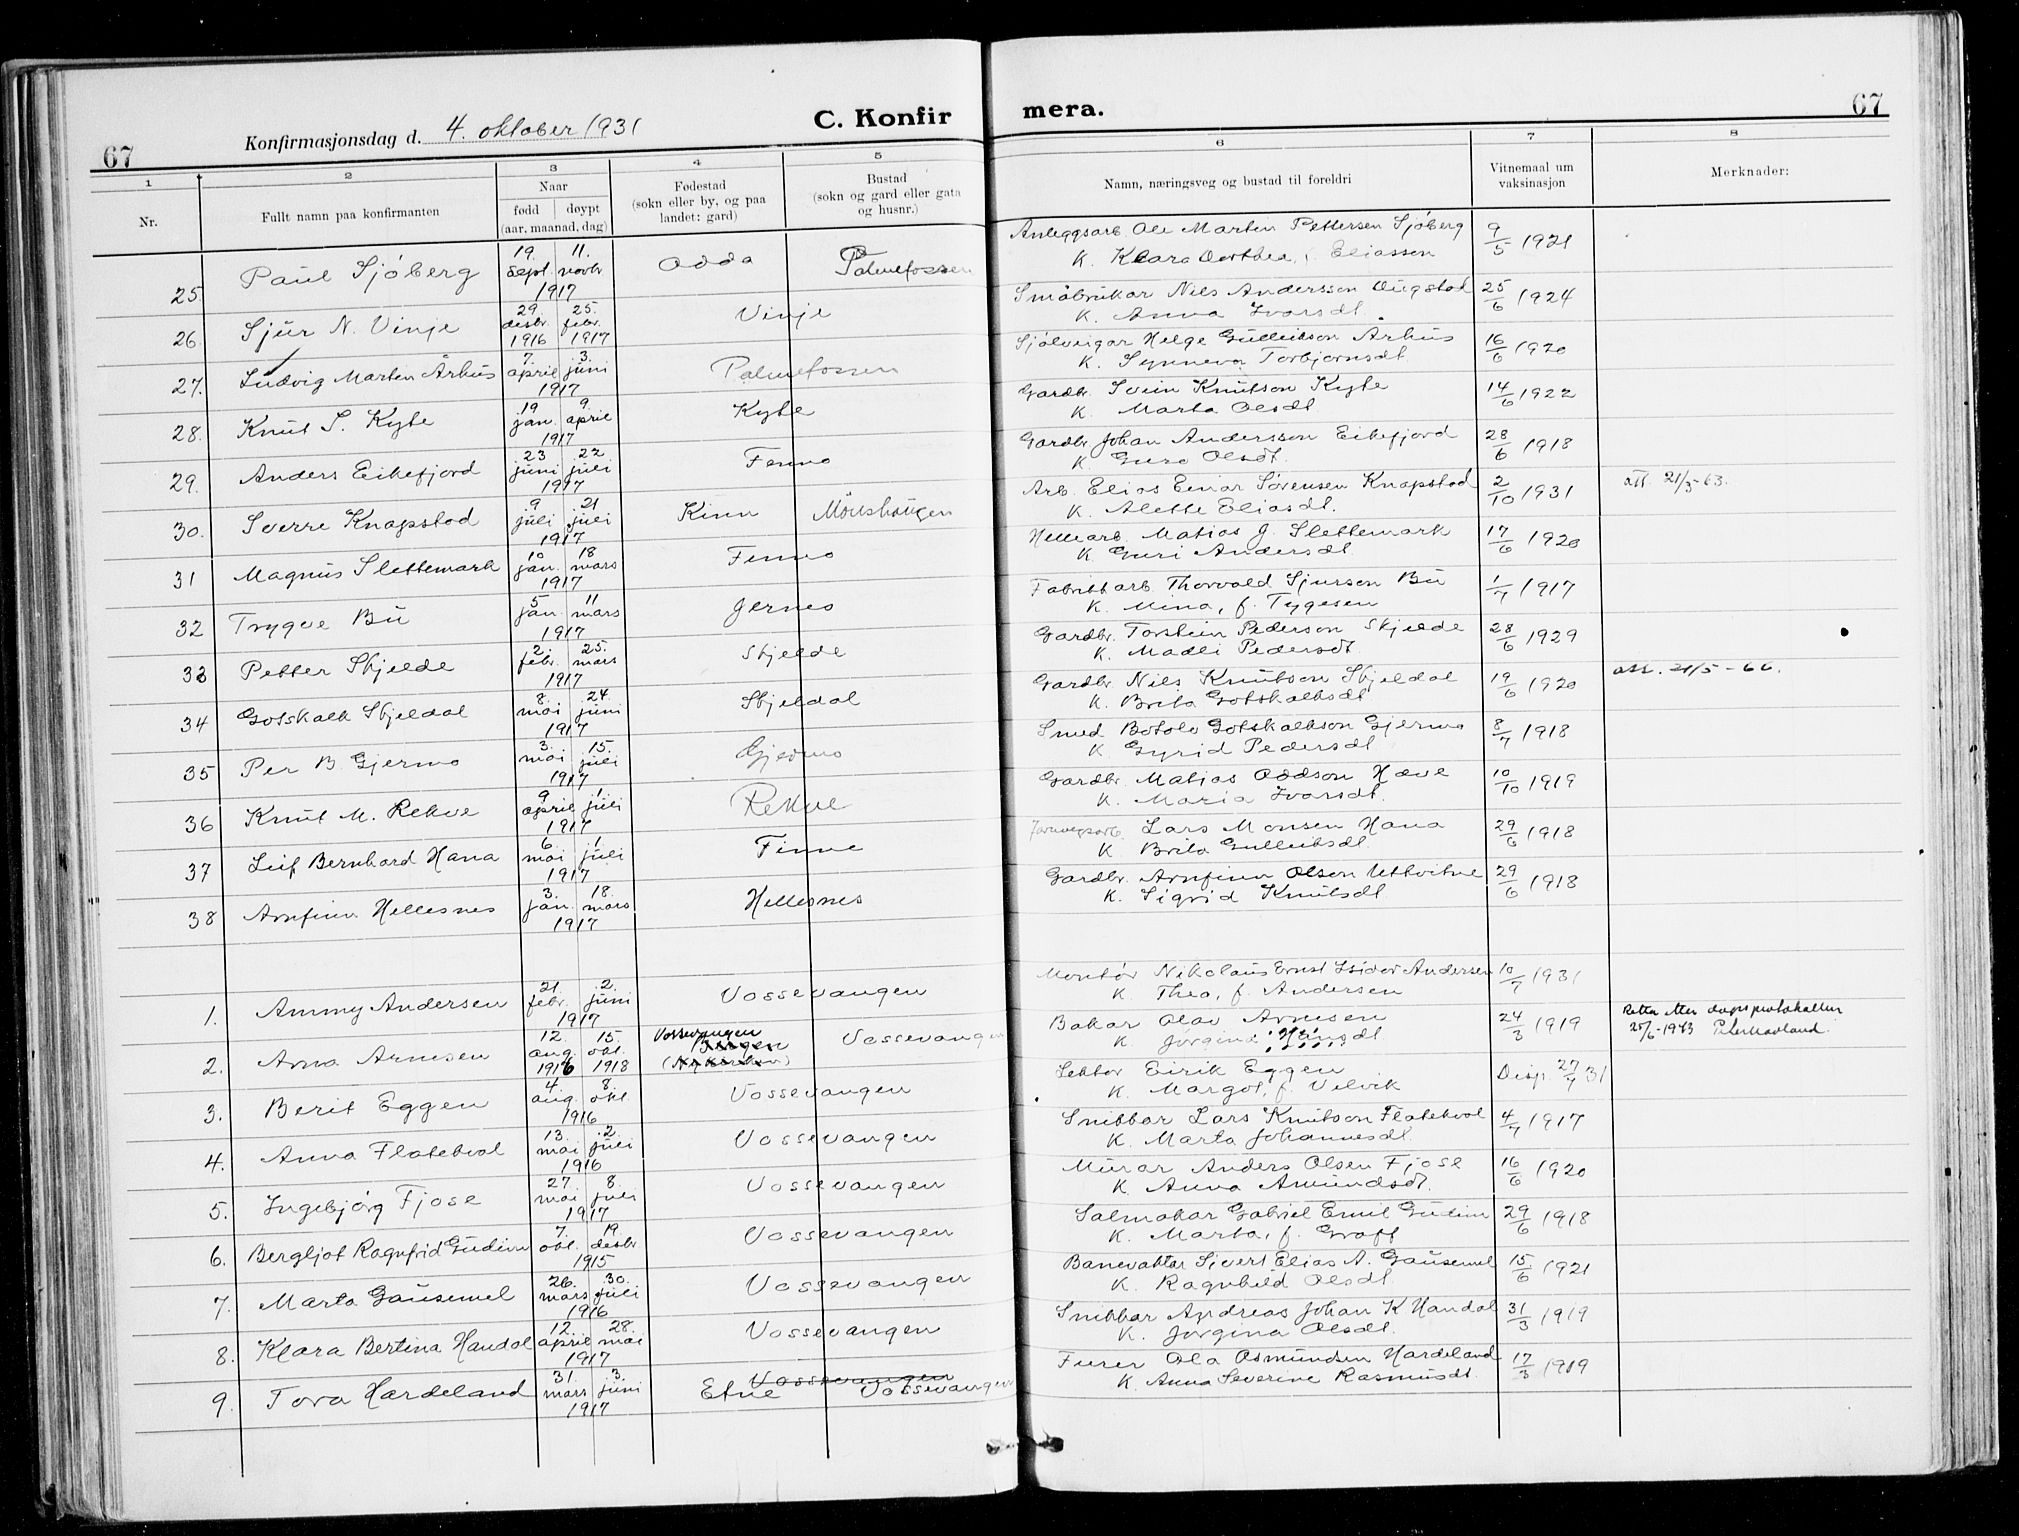 67
Konfirmasjonsdag d. 4. oktober 1931
C. Konfir
mera.
67
1
2
3
4
5
6
7
8
Nr.
Fullt namn paa konfirmanten
Naar
fødd
døypt
(aar, maanad, dag)
Fødestad
(sokn eller by, og paa
landet: gard)
Bustad
(sokn og gard eller gata
og husnr.)
Namn, næringsveg og bustad til foreldri
Vitnemaal um
vaksinasjon
Merknader:
25. Paul Sjöberg 19. sept. 11. novbr. 1917 Odda Palmefossen Anleggsarb. Ole Martin Pettersen Sjöberg 9/5 1921
K. Klara Dorthea, f. Eliassen
26. Sjur N. Vinje 29 desbr. 1916 25. febr. 1917 Vinje Småbrukar Nils Andersson Dugstad 25/6 1924
K. Anna Ivarsdt.
27. Ludvig Martin Århus 7. april 3. juni 1917 Palmefossen Sjølveigar Helge Gulleikson Århus 16/6 1920
K. Synneva Torbjørnsdt.
28. Knut S. Kyte 19 jan. 9. april 1917 Kyte Gardbr. Svein Knutson Kyte 14/6 1922
K. Marta Olsdt.
29. Anders Eikefjord 23 juni 22 juli 1917 Finno Gardbr. Johan Andersson Eikefjord 28/6 1918
K. Guro Olsdt.
30. Sverre Knapstad 9. juli 21 juli 1917 Kinn Mönshaugen Arb. Elias Einar Sørensen Knapstad 2/10 1931 att. 21/3-63.
K. Alette Eliasdt.
31 Magnus Slettemark 10 jan. 18 mars 1917 Finno Hellearb. Matias J. Slettemark 17/6 1920
K. Guri Andersdt
32 Trygve Bü 5 jan. 11 mars 1917 Gjernes Fabrikkarb. Thorvald Sjurson Bü 1/7 1917
K. Mina, f. Tygesen
33 Petter Skjelde 2. febr. 25. mars 1917 Skjelde Gardbr. Torstein Pederson Skjelde 28/6 1929
K. Madli Pedersdt.
34 Gotskalk Skjeldal 8. mai 24. juni 1917 Skjeldal Gardbr. Nils Knutson Skjeldal 19/6 1920 att. 21/5-66.
K. Brita Gotskalksdt
35 Per B. Gjermo 3. mai 15. juli 1917 Gjermo Smed Botolv Gotskalkson Gjermo 8/7 1918
K. Gyrid Pedersdt
36 Knut M. Rekve 9 april 1 juli 1917 Rekve Gardbr. Matias Oddson Hæve 10/10 1919
K. Maria Ivarsdt.
37 Leif Bernhard Hana 6. mai 1. juli 1917 Finne Jarnvegsarb. Lars Monsen Hana 29/6 1918
K. Brita Gulleiksdt.
38 Arnfinn Hellesnes 3. jan. 18. mars 1917 Hellesnes Gardbr. Arnfinn Olson Uttveitne 29/6 1918
K. Sigrid Knutsdt.
1. Ammy Andersen 21. febr. 2. juni 1917 Vossevangen Montör Nikolaus Ernst Isidor Andersen 10/7 1931
K. Thea, f. Andersen
2. Arna Arnesen 12. aug. 1916 15. okt. 1918 Vossevangen Bergen (Nykirken) Vossevangen Bakar Olav Arnesen 24/3 1919 Retta etter dåpsprotokollen
K. Jorgina Hansdt 25/6-1943
3. Berit Eggen 4. aug. 8. okt. 1916 Vossevangen Lektor Eirik Eggen Disp. 27/7 31
K. Margot, f. Velvik
4. Anna Flatekval 13. mai 2. juli 1916 Vossevangen Snikkar Lars Knutson Flatekval 4/7 1917
K. Marta Johannesdt.
5. Ingebjörg Fjose 27. mai 8. juli 1917 Vossevangen Murar Anders Olsen Fjose 16/6 1920
K. Anna Amundsdt.
6. Bergljot Ragnfrid Gudim 7. okt. 19. desbr. 1915 Vossevangen Salmakar Gabriel Emil Gudim 29/6 1918
K. Marta, f. Graff
7. Marta Gausemel 26. mars 30. juli 1916 Vossevangen Banevaktar Sivert Elias A. Gausemel 15/6 1921
K. Ragnhild Olsdt.
8. Klara Bertina Handal 12. april 28. mai 1917 Vossevangen Snikkar Andreas Johan K Handal 31/3 1919
K. Jorgina Olsdt.
9. Tora Hardeland 31. mars 3. juni 1917 Vossevangen Etne Vossevangen Furer Ola Osmundsen Hardeland 17/3 1919
K. Anna Severine Rasmusdt.